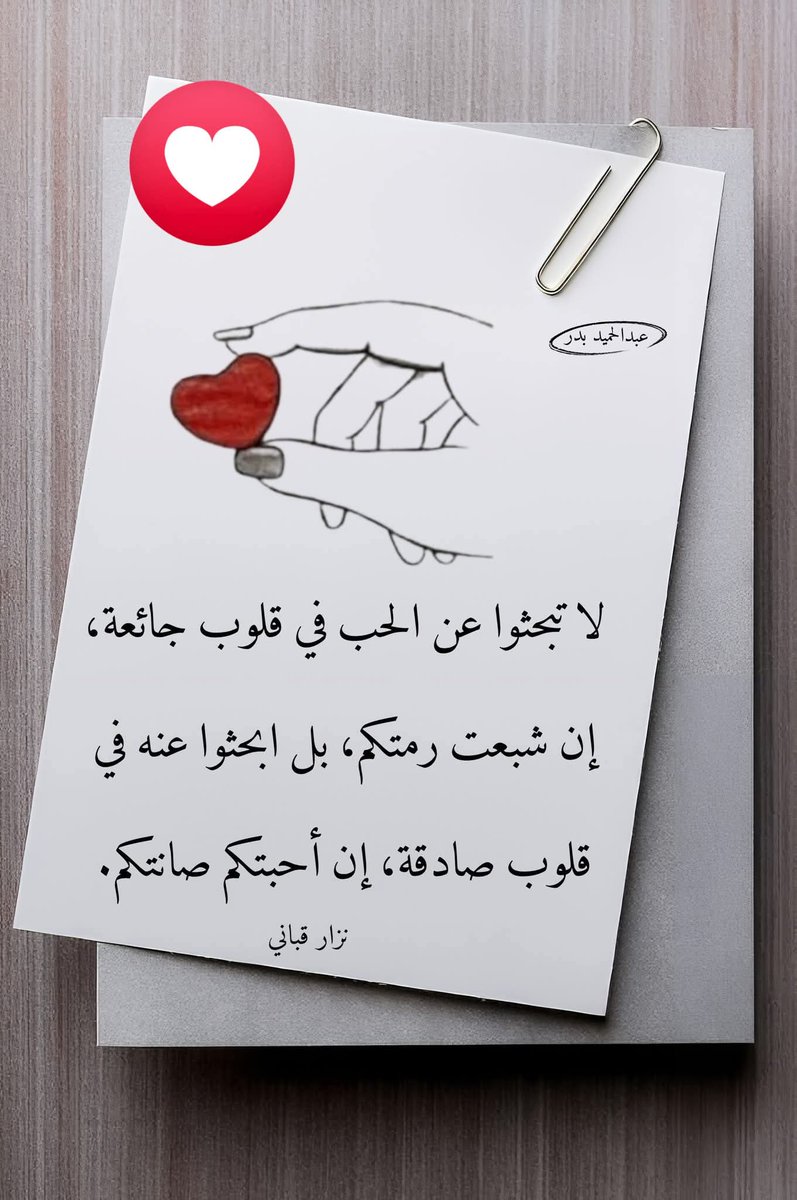 عبدالحميد بدر
لا تبحثوا عن الحب في قلوب جائعة،
إن شبعت رمتكم، بل ابحثوا عنه في
قلوب صادقة، إن أحبتكم صانتكم.
نزار قباني